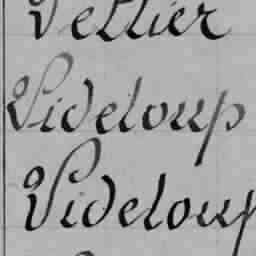 Vellier
Videloup
Videloup